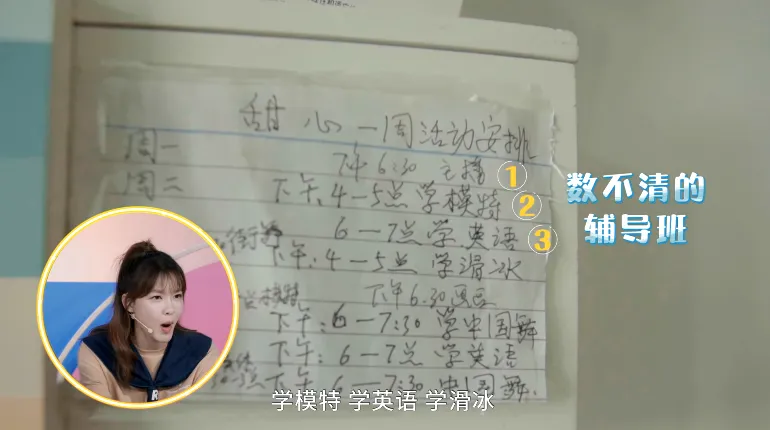 甜心一周活动安排
周一 下午6:30 主播 ①
周二 下午:4-5点学模特 ②
6-7点学英语 ③
下午:4-5点 学滑冰
下午6:30
下午:6-7:30学中国舞
下午:6-7点学英语
下午 6-7:30中国舞.
数不清的
辅导班
R
学模特 学英语 学滑冰